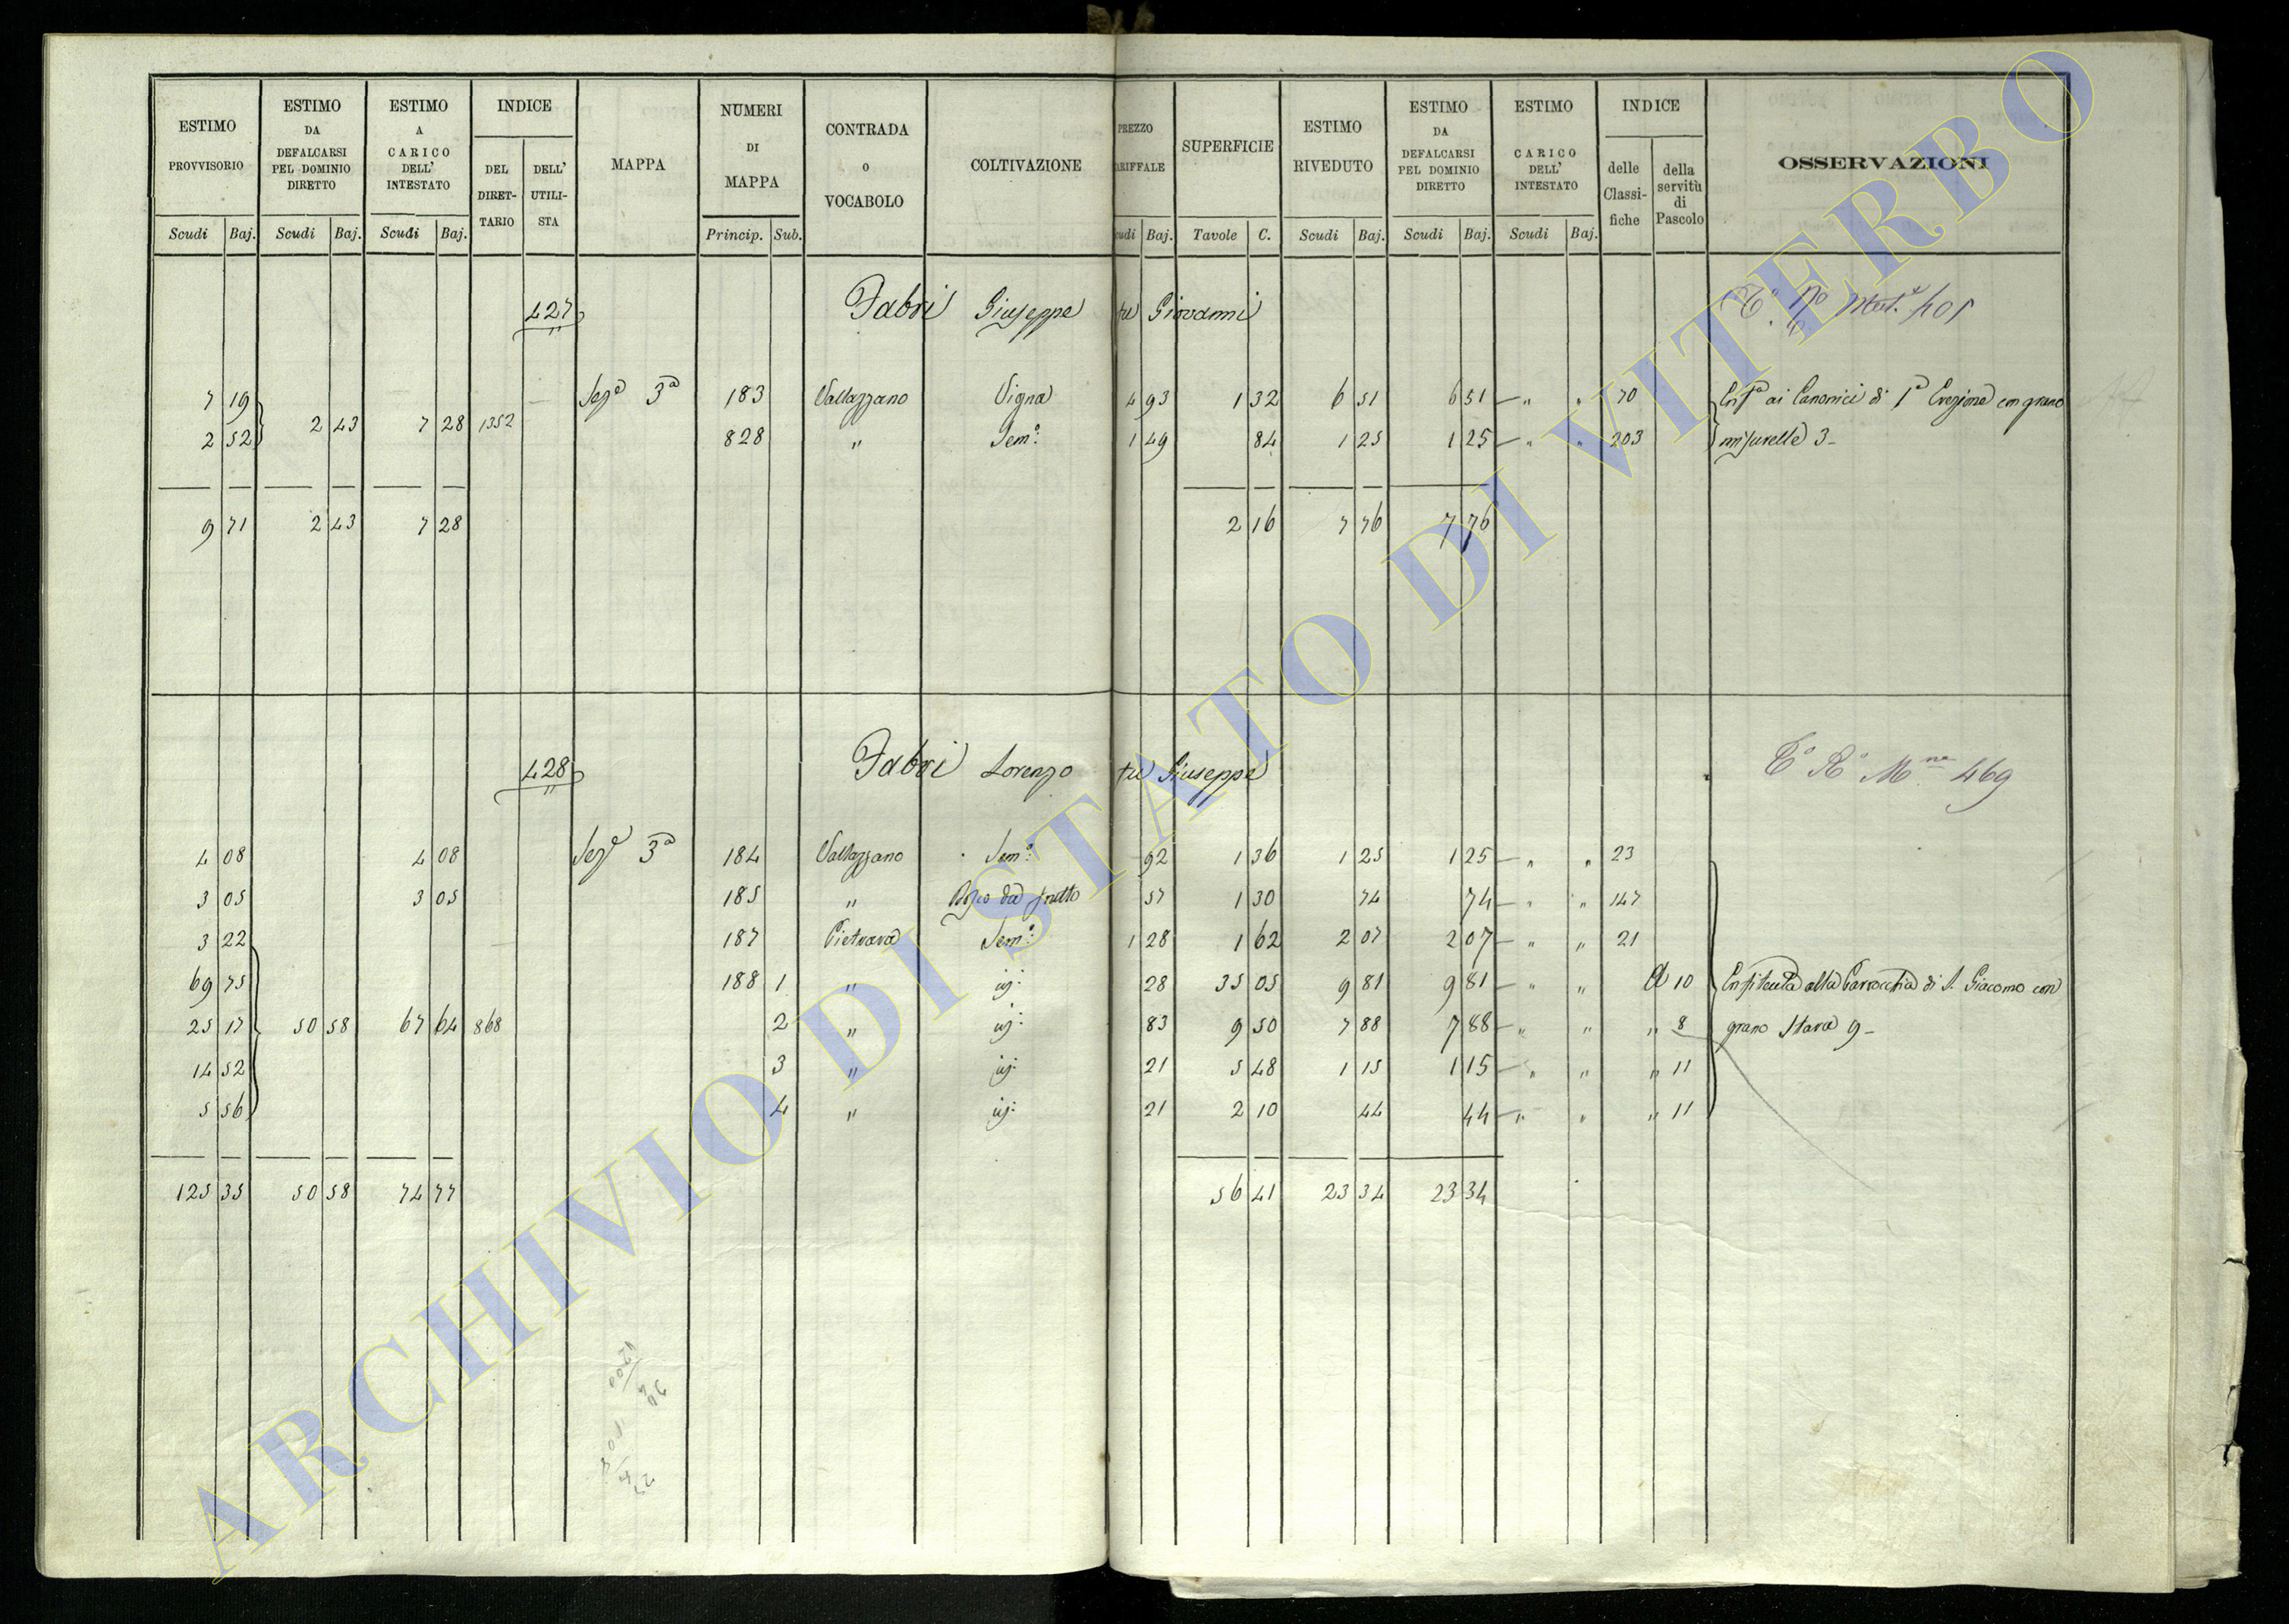 ESTIMO PROVVISORIO | ESTIMO DA DEFALCARSI PEL DOMINIO DIRETTO | ESTIMO A CARICO DELL' INTESTATO | INDICE | MAPPA | NUMERI DI MAPPA | CONTRADA o VOCABOLO | COLTIVAZIONE | PREZZO ARIFFALE | SUPERFICIE | ESTIMO RIVEDUTO | ESTIMO DA DEFALCARSI PEL DOMINIO DIRETTO | ESTIMO A CARICO DELL' INTESTATO | INDICE | OSSERVAZIONI
DEL DIRETTARIO | DELL' UTILISTA | delle Classifiche | della servitù di Pascolo
Scudi | Baj. | Scudi | Baj. | Scudi | Baj. | Princip. | Sub. | udi | Baj. | Tavole | C. | Scudi | Baj. | Scudi | Baj. | Scudi | Baj.
427 Fabri Giuseppe fu Giovanni
7 19 | Sezᵉ 3ª | 183 | Vallazzano | Vigna | 4 93 | 1 32 | 6 51 | 6 51 | — " " | 70 | Enfᵃ ai Canonici di 1ª Erezione con grano
2 43 | 7 28 | 1352
2 52 | 828 | " | Semᵒ: | 1 49 | 84 | 1 25 | 1 25 | — " " | 203 | misurelle 3-
9 71 | 2 43 | 7 28 | 2 16 | 7 76 | 7 76
428 Fabri Lorenzo fu Giuseppe Mⁿᵉ 469
4 08 | 4 08 | Sezᵉ 3ª | 184 | Vallazzano | Semᵒ: | 92 | 1 36 | 1 25 | 1 25 | — " " | 23
3 05 | 3 05 | 185 | " | da frutto | 57 | 1 30 | 74 | 74 | — " " | 147
3 22 | 187 | Pietrara | Semᵒ: | 1 28 | 1 62 | 2 07 | 2 07 | — " " | 21
69 75 | 188 | 1 | " | 28 | 35 05 | 9 81 | 9 81 | — " " | 10 | Enfiteuta alla Parrocchia di S. Giacomo con
25 17 | 50 58 | 67 64 | 868 | 2 | " | 83 | 9 50 | 7 88 | 7 88 | — " " | " 8 | grano Stara 9-
14 52 | 3 | " | 21 | 5 48 | 1 15 | 1 15 | — " " | " 11
5 56 | 4 | " | 21 | 2 10 | 44 | 44 | — " " | " 11
125 35 | 50 58 | 74 77 | 56 41 | 23 34 | 23 34
ARCHIVIO DI STATO DI VITERBO